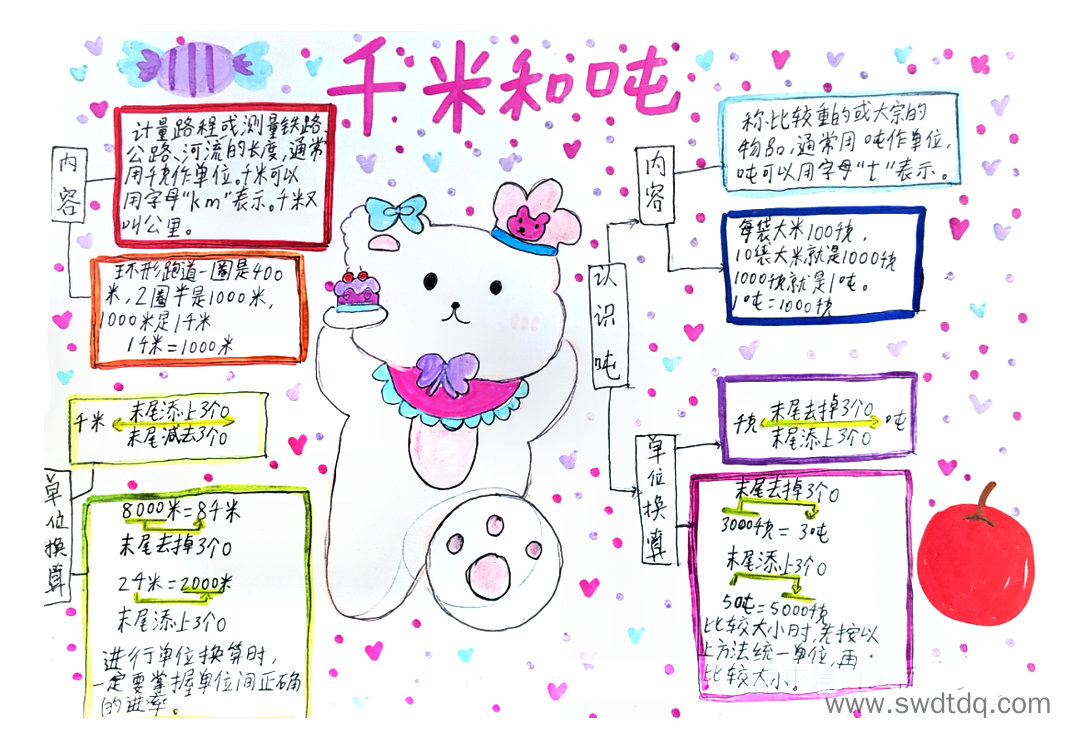 千米和吨
内容
计量路程或测量铁路、
公路、河流的长度,通常
用千米作单位。千米可以
用字母“km”表示。千米又
叫公里。
环形跑道一圈是400
米,2圈半是1000米,
1000米是1千米
1千米=1000米
单位换算
千米
末尾添上3个0
末尾减去3个0
8000米=8千米
末尾去掉3个0
2千米=2000米
末尾添上3个0
进行单位换算时,
一定要掌握单位间正确
的进率。
认识吨
内容
称比较重的或大宗的
物品,通常用吨作单位,
吨可以用字母“t”表示。
每袋大米100千克,
10袋大米就是1000千克
1000千克就是1吨。
1吨=1000千克
单位换算
千克
末尾去掉3个0
末尾添上3个0
吨
末尾去掉3个0
3000千克=3吨
末尾添上3个0
5吨=5000千克
比较大小时,先按以
上方法统一单位,再
比较大小。
www.swdtdq.com